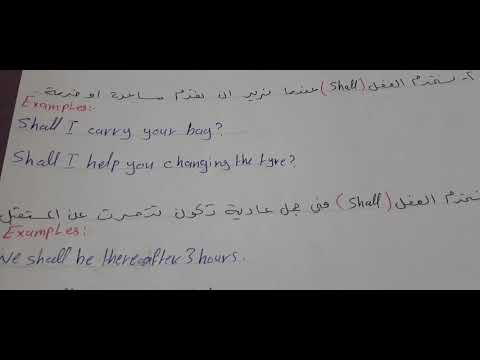 ٢- نستخدم الفعل (Shall) عندما نريد ان نقدم مساعدة او خدمة.
Examples:
Shall I carry your bag?
Shall I help you changing the tyre?
نستخدم الفعل (Shall) في جمل عادية تكون تتحدث عن المستقبل
Examples:
We shall be there after 3 hours.